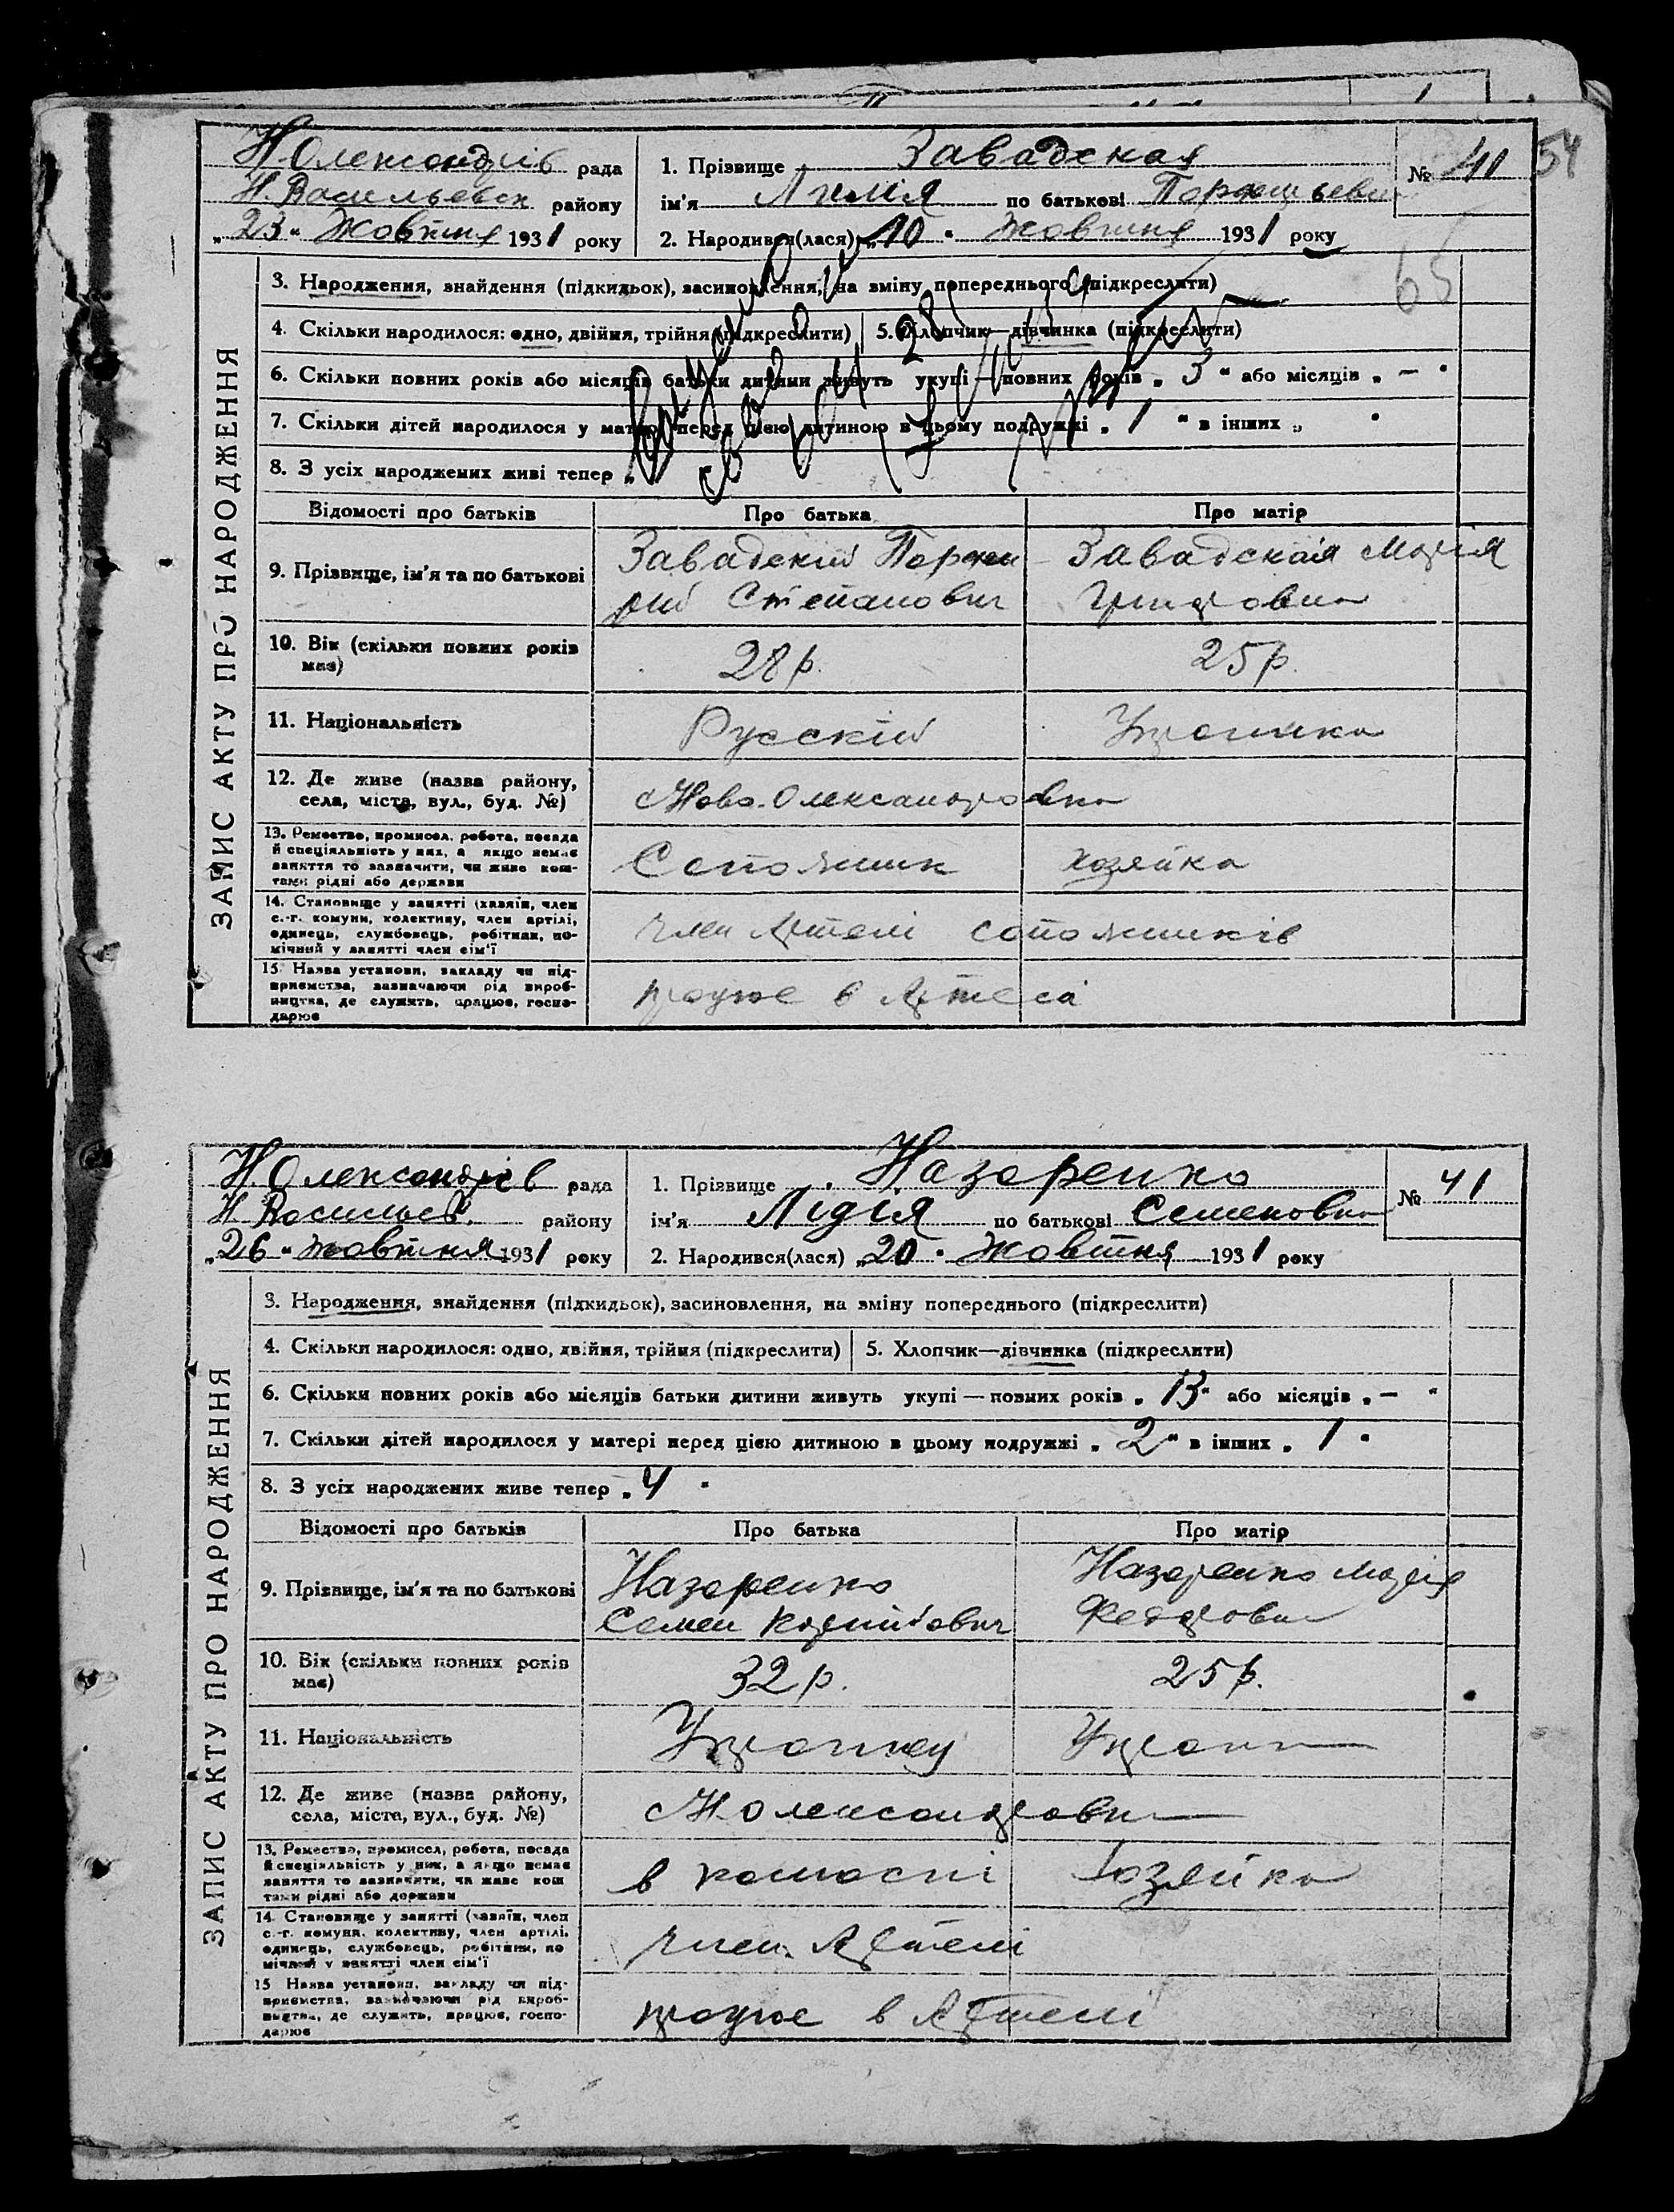 54
65
Н.Олександрів рада
Н.Васильевск району
„23“ Жовтня 1931 року
1. Прізвище Завадская
№ 41
ім'я Лилія по батькові
2. Народився(лася) „10“ Жовтня 1931 року
ЗАПИС АКТУ ПРО НАРОДЖЕННЯ
3. Народження, знайдення (підкидьок), засиновлення, на зміну попереднього (підкреслити)
4. Скільки народилося: одно, двійня, трійня (підкреслити)
5. Хлопчик—дівчинка (підкреслити)
6. Скільки повних років або місяців батьки дитини живуть укупі — повних років „3“ або місяців „—“
7. Скільки дітей народилося у матері перед цією дитиною в цьому подружжі „1“ в інших „ “
8. З усіх народжених живі тепер „
Відомості про батьків Про батька Про матір
9. Прізвище, ім'я та по батькові
Завадский
Степанович
Завадская Марія
10. Вік (скільки повних років має)
28 р. 25 р.
11. Національність
Русский Украинка
12. Де живе (назва району, села, міста, вул., буд. №)
Ново-Олександровка
13. Ремество, промисел, робота, посада
й спеціяльність у них, а якщо немає
заняття то зазначити, чи живе кош-
тами рідні або держави
Сапожник хозяйка
14. Становище у занятті (хазяїн, член
с.-г. комуни, колективу, член артілі,
одинець, службовець, робітник, по-
мічний у занятті член сім'ї
член Артелі сапожників
15. Назва установи, закладу чи під-
приємства, зазначаючи рід вироб-
ництва, де служить, працює, госпо-
дарює
працює в Артелі
Н.Олександрів рада
Н.Васильев. району
„26“ жовтня 1931 року
1. Прізвище Назаренко
№ 41
ім'я Лідія по батькові Семеновна
2. Народився(лася) „20“ Жовтня 1931 року
ЗАПИС АКТУ ПРО НАРОДЖЕННЯ
3. Народження, знайдення (підкидьок), засиновлення, на зміну попереднього (підкреслити)
4. Скільки народилося: одно, двійня, трійня (підкреслити)
5. Хлопчик—дівчинка (підкреслити)
6. Скільки повних років або місяців батьки дитини живуть укупі — повних років „13“ або місяців „—“
7. Скільки дітей народилося у матері перед цією дитиною в цьому подружжі „2“ в інших „1“
8. З усіх народжених живе тепер „4“
Відомості про батьків Про батька Про матір
9. Прізвище, ім'я та по батькові
Назаренко
Семен
Назаренко Марія
Федоровна
10. Вік (скільки повних років має)
32 р. 25 р.
11. Національність
Украинец Украин
12. Де живе (назва району, села, міста, вул., буд. №)
Н.Олександровк
13. Ремество, промисел, робота, посада
й спеціяльність у них, а якщо немає
заняття то зазначити, чи живе кош
тами рідні або держави
в колгоспі Хозяйка
14. Становище у занятті (хазяїн, член
с.-г. комуни, колективу, член артілі,
одинець, службовець, робітник, по
мічний у занятті член сім'ї
член Артелі
15 Назва установи, закладу чи під-
приємства, зазначаючи рід вироб-
ництва, де служить, працює, госпо-
дарює
працює в Артелі